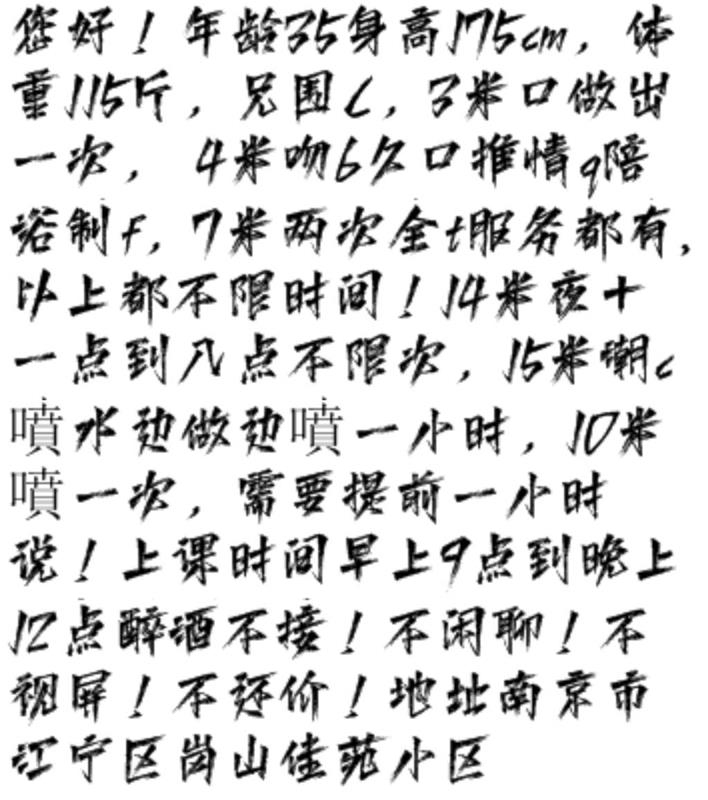 您好！年龄35身高175cm，体
重115斤，兄围C，3米口做出
一次，4米吻69久口推情q陪
浴制f，7米两次全t服务都有，
以上都不限时间！14米夜十
一点到八点不限次，15米潮c
噴水边做边噴一小时，10米
噴一次，需要提前一小时
说！上课时间早上9点到晚上
12点醉酒不接！不闲聊！不
视屏！不还价！地址南京市
江宁区岗山佳苑小区